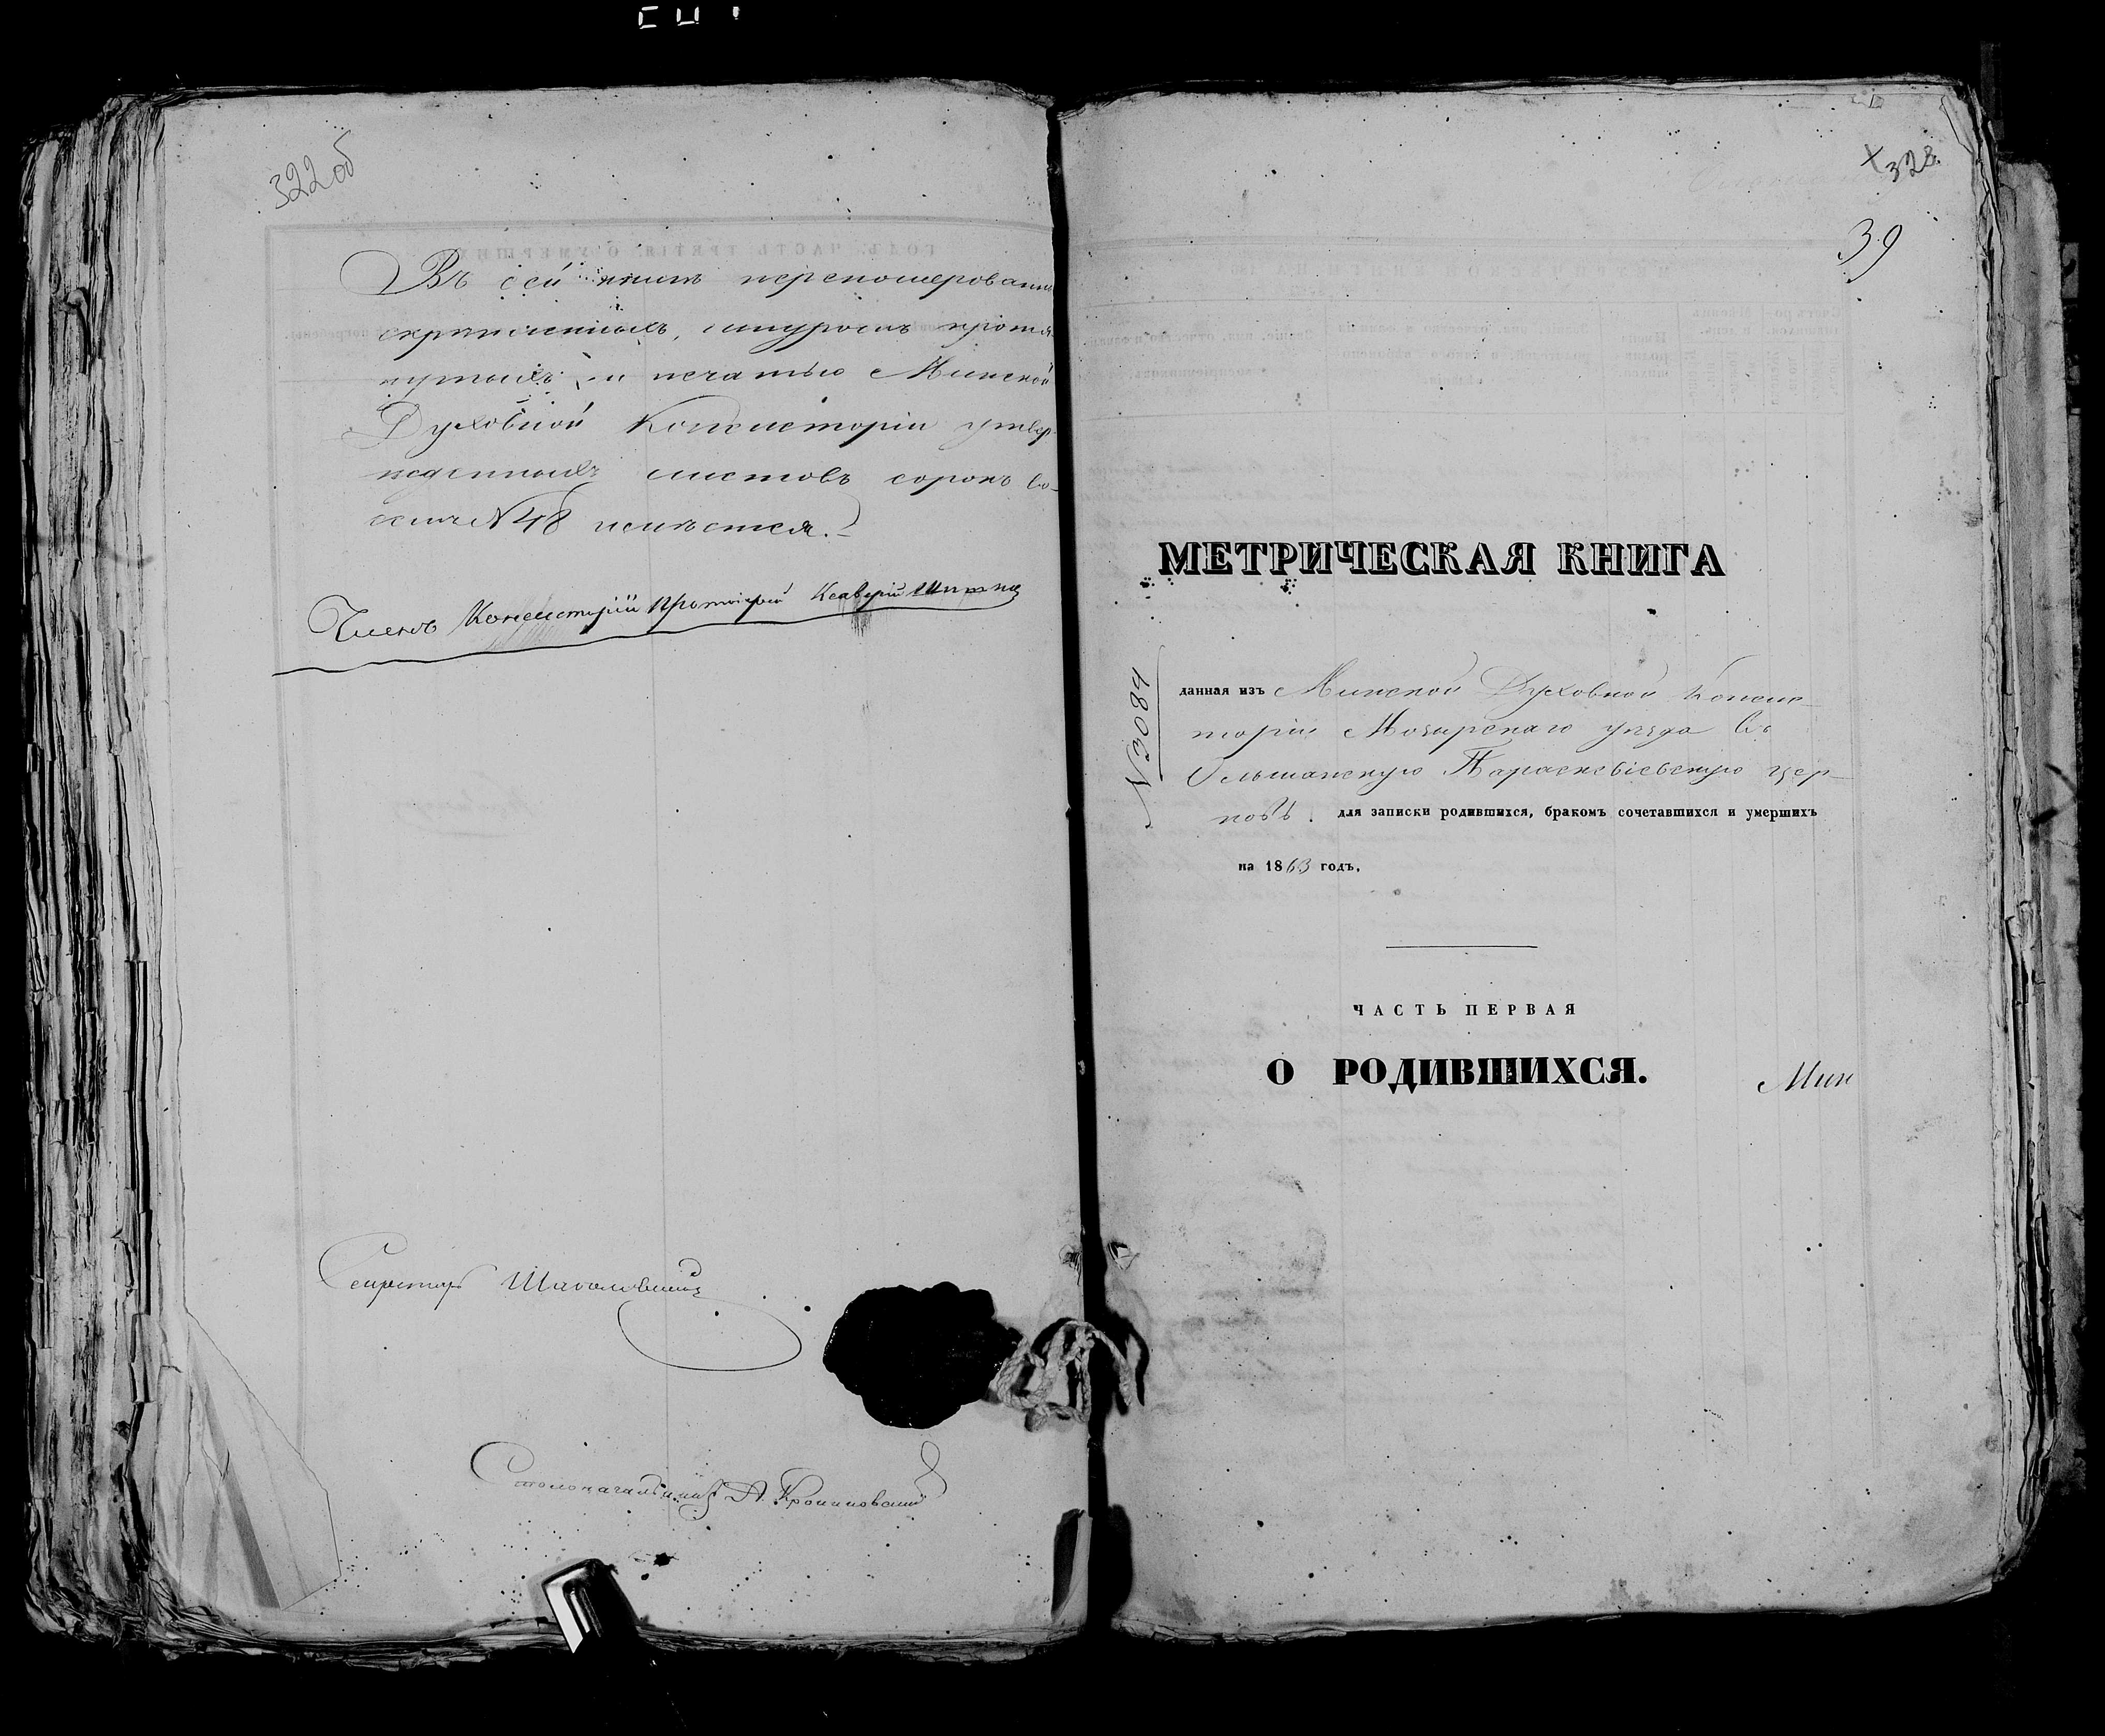 322об
Въ сей книгѣ перепомерован
скрѣпленныхъ, шнуромъ протя
нутыхъ и печатью Минской
Духовной Консисторіи утвер
жденныхъ листовъ сорокъ во-
семь N 48 имѣется.
Членъ Консисторіи Протоіерей Ксаверій
Секретарь
Столоначальникъ А.
328
39
МЕТРИЧЕСКАЯ КНИГА
N 3084
данная изъ Минской Духовной Консис-
торіи Мозырскаго уѣзда въ
Ольшанскую Параскевіевскую цер-
ковь. для записки родившихся, бракомъ сочетавшихся и умершихъ
на 1863 годъ.
ЧАСТЬ ПЕРВАЯ
О РОДИВШИХСЯ.
Мин